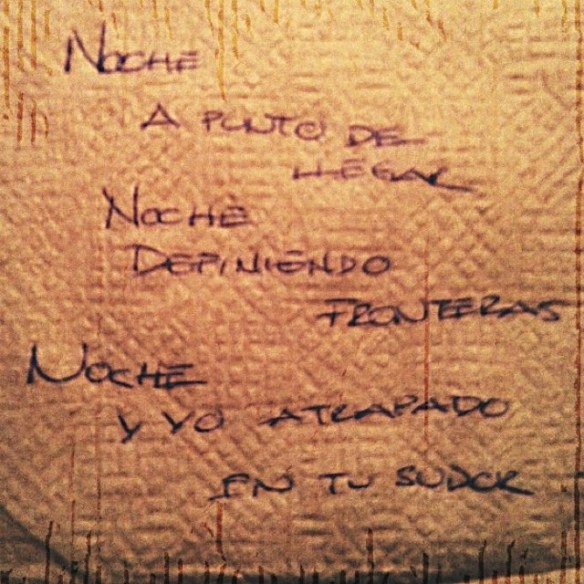 NOCHE
A PUNTO DE
LLEGAR
NOCHE
DEFINIENDO
FRONTERAS
NOCHE
Y YO ATRAPADO
EN TU SUDOR